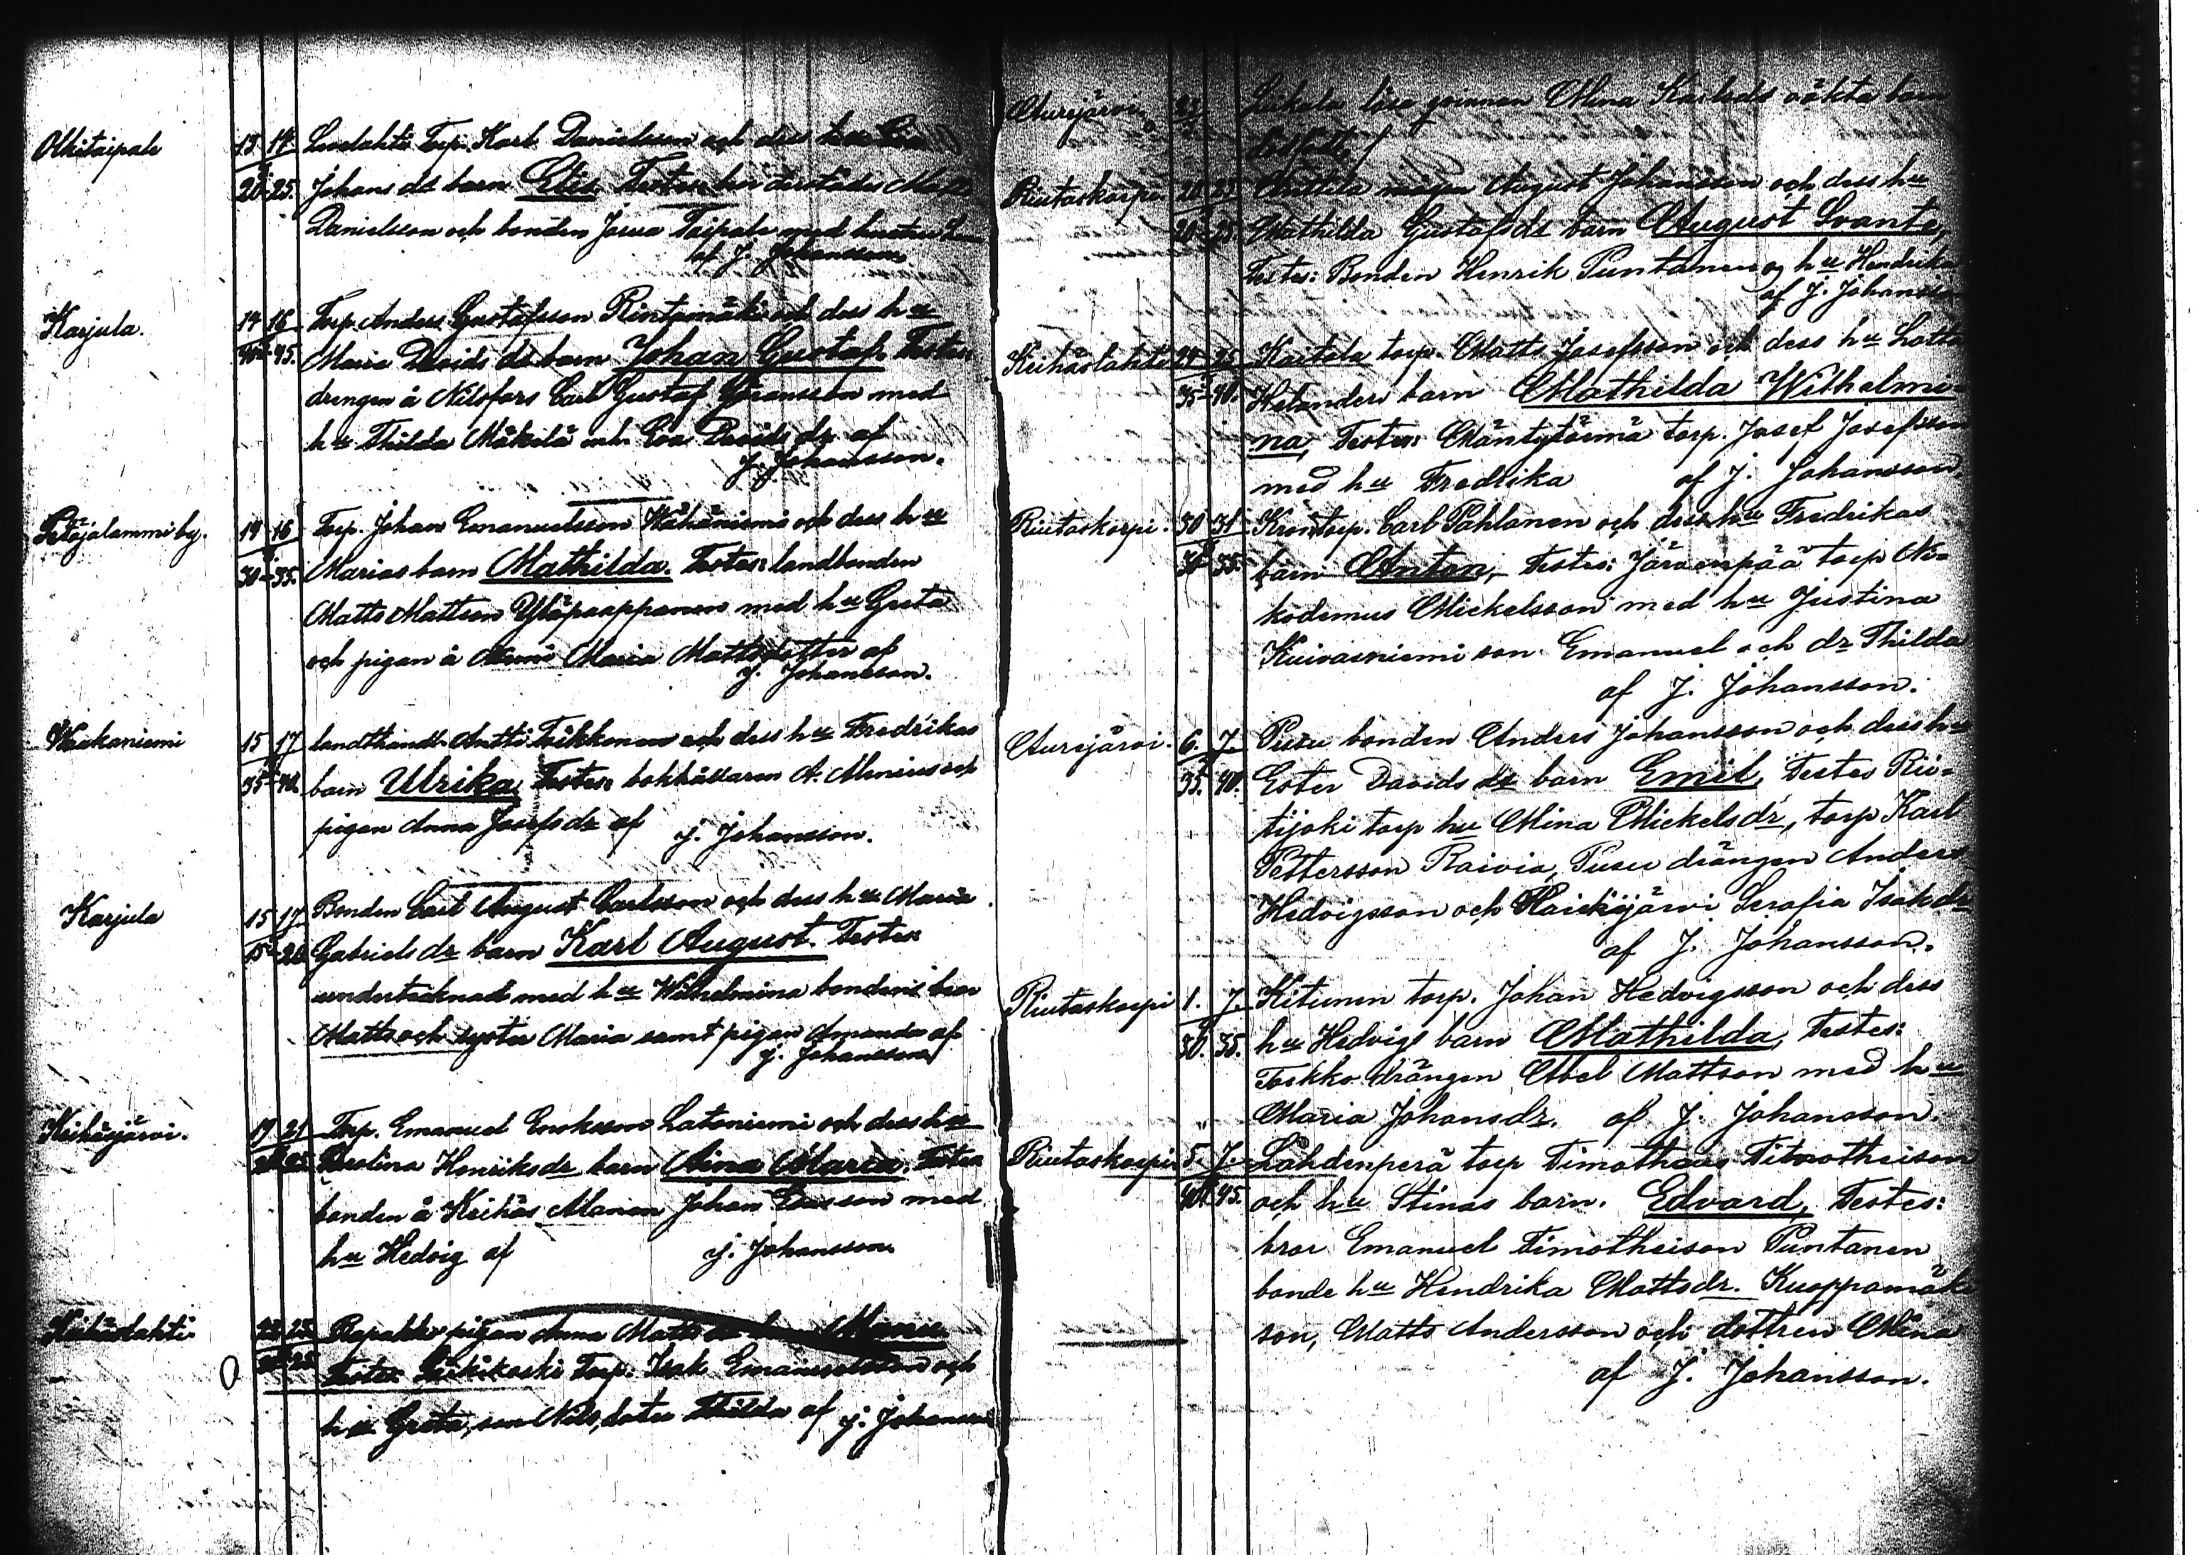 Olkitaipale 13 14 Torp. Karl Danielsson och dess hu
20 25. Johans dr barn Elis Testes: Matts
Danielsson och bonden Josua Taipale med hustru
af J. Johansson
Karjula. 14 16 Torp. Anders Gustafsson Rintamäki och dess hu
40 45. Maria Davids dr barn Johan Gustaf. Testes
drengen å Nilsfors Carl Gustaf Göransson med
hu Thilda Mäkelä och Eva Davids dr af
J. Johansson.
Petäjälammi by. 14 16 Torp. Johan Emanuelsson Wähäniemi och dess hu
30 35. Marias barn Mathilda. Testes: landbonden
Matts Mattson Yläpaappanen med hu Greta
och pigan å Niemi Maria Mattsdotter af
J. Johansson.
Waakaniemi 15 17 landthandl. Antti Toikkonen och dess hu Fredrikas
35 40. barn Ulrika Testes: bokhållaren A. Alenius och
pigan Anna Josefs dr af J. Johansson.
Karjula 15 17 Bonden Carl August Carlsson och dess hu Maria
15 20 Gabriels dr barn Karl August. Testes
undertecknad med hu Wilhelmina bondens bror
Matts och syster Maria samt pigan Amanda af
J. Johansson
Keihäsjärvi. 19 21 Torp. Emanuel Enoksson Latoniemi och dess hu
Carolina Henriks dr barn Aina Maria. Testes
bonden å Keihäs Manan Johan Ersson med
hu Hedvig af J. Johansson
Keihäslahti 25 Rapakko pigan Anna Matts dr barn
25 Testes Torp. Isak Emanuelsson och
hu Greta, son Nils, doter Thilda af J. Johansson
Aurejärvi 23 lösa qvinnan Mina Karls dr oäkta barn
Riutaskorpi 23 Anttila mågen August Johansson och dess hu
20 25 Mathilda Gustafs dr barn August Svante,
Testes: Bonden Henrik Puntanen o hu Hendrika
af J. Johansson
Keihäslahti 24 25 Kaitala torp. Matts Josefsson och dess hu Lotta
35 40. Helanders barn Mathilda Wilhelmi-
na, Testes: Mäntytörmä torp. Josef Josefsson
med hu Fredrika af J. Johansson,
Riutaskorpi. 30 31 Krontorp. Carl Pahlanen och dess hu Fredrikas
30 35. barn Anton, Testes: Järvenpää torp Ni-
kodemus Mickelsson med hu Justina
Kuivasniemi son Emanuel och dr Thilda
af J. Johansson.
Aurejärvi. 6. 7. Pusu bonden Anders Johansson och dess hu
35. 40. Ester Davids dr barn Emil, Testes Rii-
tijoki torp hu Mina Mickels dr, torp Karl
Pettersson Raivio, Pusu drängen Anders
Hedvigsson och Haickijärvi Serafia Isaks dr
af J. Johansson.
Riutaskorpi 1. 7. Kitunen torp. Johan Hedvigsson och dess
30. 35. hu Hedvigs barn Mathilda, Testes:
Toikko drängen Abel Mattson med hu
" Maria Johans dr. af J. Johansson.
Riutaskorpi 5. 7. Lahdenperä torp Timotheus Timotheison
40. 45. och hu Stinas barn. Edvard, Testes:
bror Emanuel Timotheison Puntanen
bonde hu Hendrika Matts dr. Kuoppamäki
son, Matts Andersson och dottren Mina
af J. Johansson.